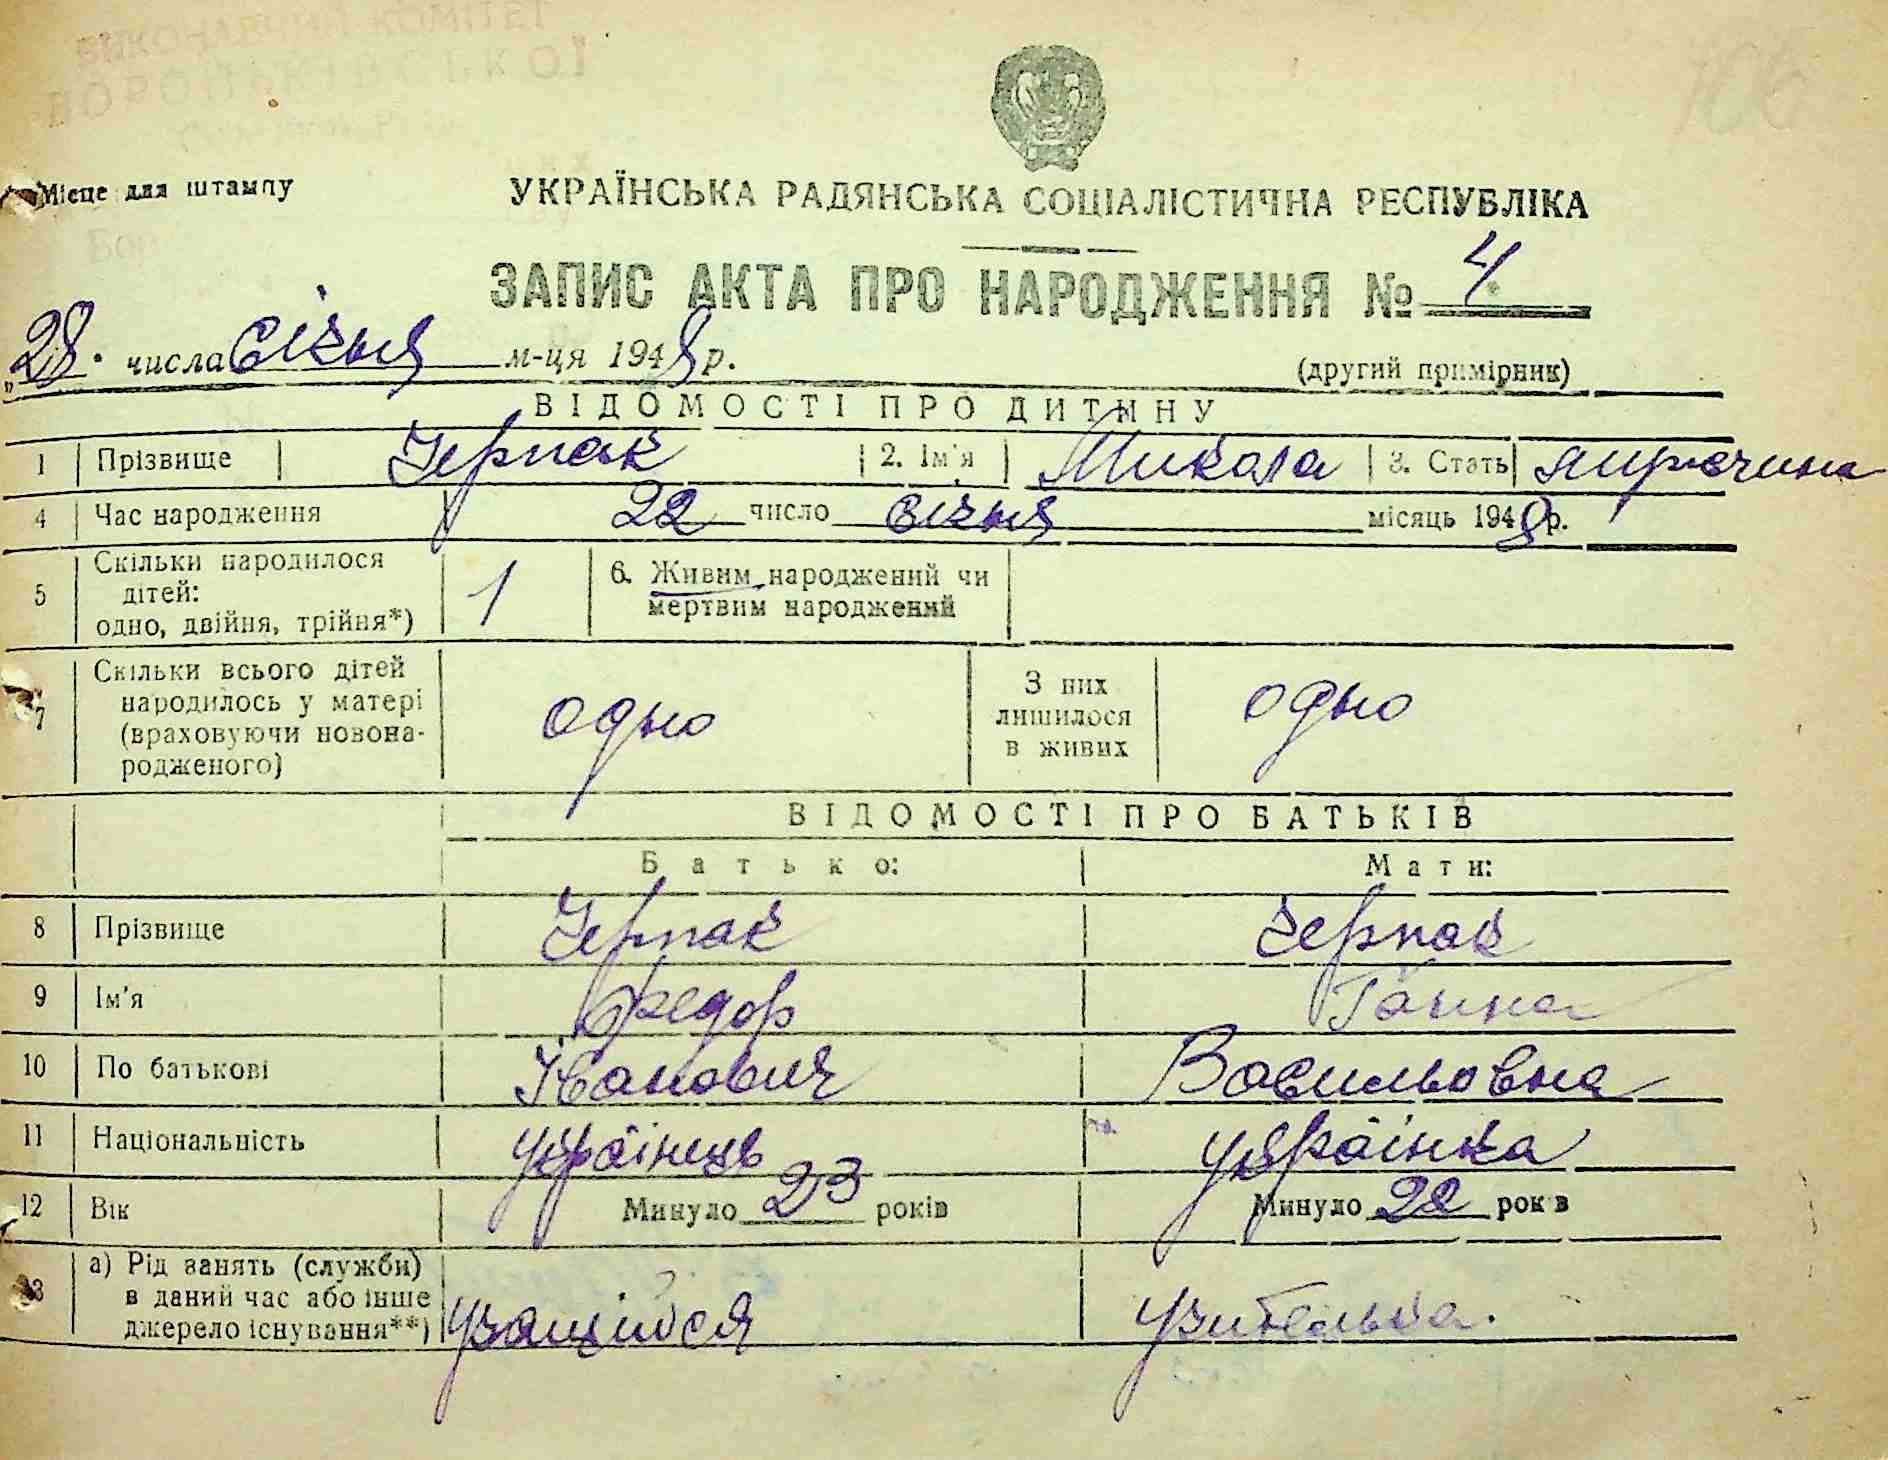 ВИКОНАВЧИЙ КОМІТЕТ
106
Місце для штампу
УКРАЇНСЬКА РАДЯНСЬКА СОЦІАЛІСТИЧНА РЕСПУБЛІКА
ЗАПИС АКТА ПРО НАРОДЖЕННЯ № 4
„28" числа січня м-ця 1948 р.
(другий примірник)
ВІДОМОСТІ ПРО ДИТИНУ
1 Прізвище Черпак 2. Ім'я Микола 3. Стать мужчина
4 Час народження 22 число січня місяць 1948 р.
5 Скільки народилося дітей: одно, двійня, трійня*) 1 6. Живим народжений чи мертвим народжений
7 Скільки всього дітей народилось у матері (враховуючи новонародженого) одно З них лишилося в живих одно
ВІДОМОСТІ ПРО БАТЬКІВ
Батько: Мати:
8 Прізвище Черпак Черпак
9 Ім'я Федор Ганна
10 По батькові Іванович Васильовна
11 Національність українець українка
12 Вік Минуло 23 років Минуло 22 років
13 а) Рід занять (служби) в даний час або інше джерело існування**) учащийся учителька.